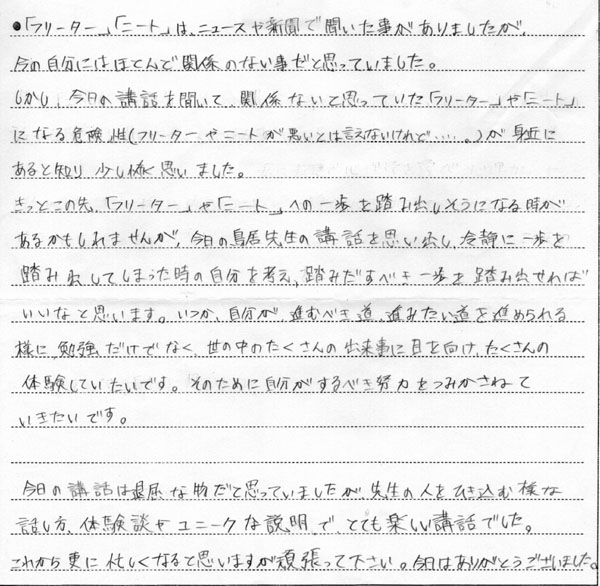 ●「フリーター」、「ニート」は、ニュースや新聞で聞いた事がありましたが、
今の自分にはほとんど関係のない事だと思っていました。
しかし、今日の講話を聞いて、関係ないと思っていた「フリーター」や「ニート」
になる危険性(フリーターやニートが悪いとは言えないけれど……。)が身近に
あると知り、少し怖く思いました。
きっとこの先、「フリーター」や「ニート」への一歩を踏み出しそうになる時が
あるかもしれませんが、今日の鳥居先生の講話を思い出し、冷静に一歩を
踏み出してしまった時の自分を考え、踏みだすべき一歩を踏み出せれば
いいなと思います。いつか、自分が、進むべき道、進みたい道を進められる
様に、勉強だけでなく、世の中のたくさんの出来事に目を向け、たくさんの
体験していたいです。そのために自分がするべき努力をつみかさねて
いきたいです。
今日の講話は退屈な物だと思っていましたが、先生の人をひき込む様な
話し方、体験談やユニークな説明で、とても楽しい講話でした。
これから更に忙しくなると思いますが頑張って下さい。今日はありがとうございました。